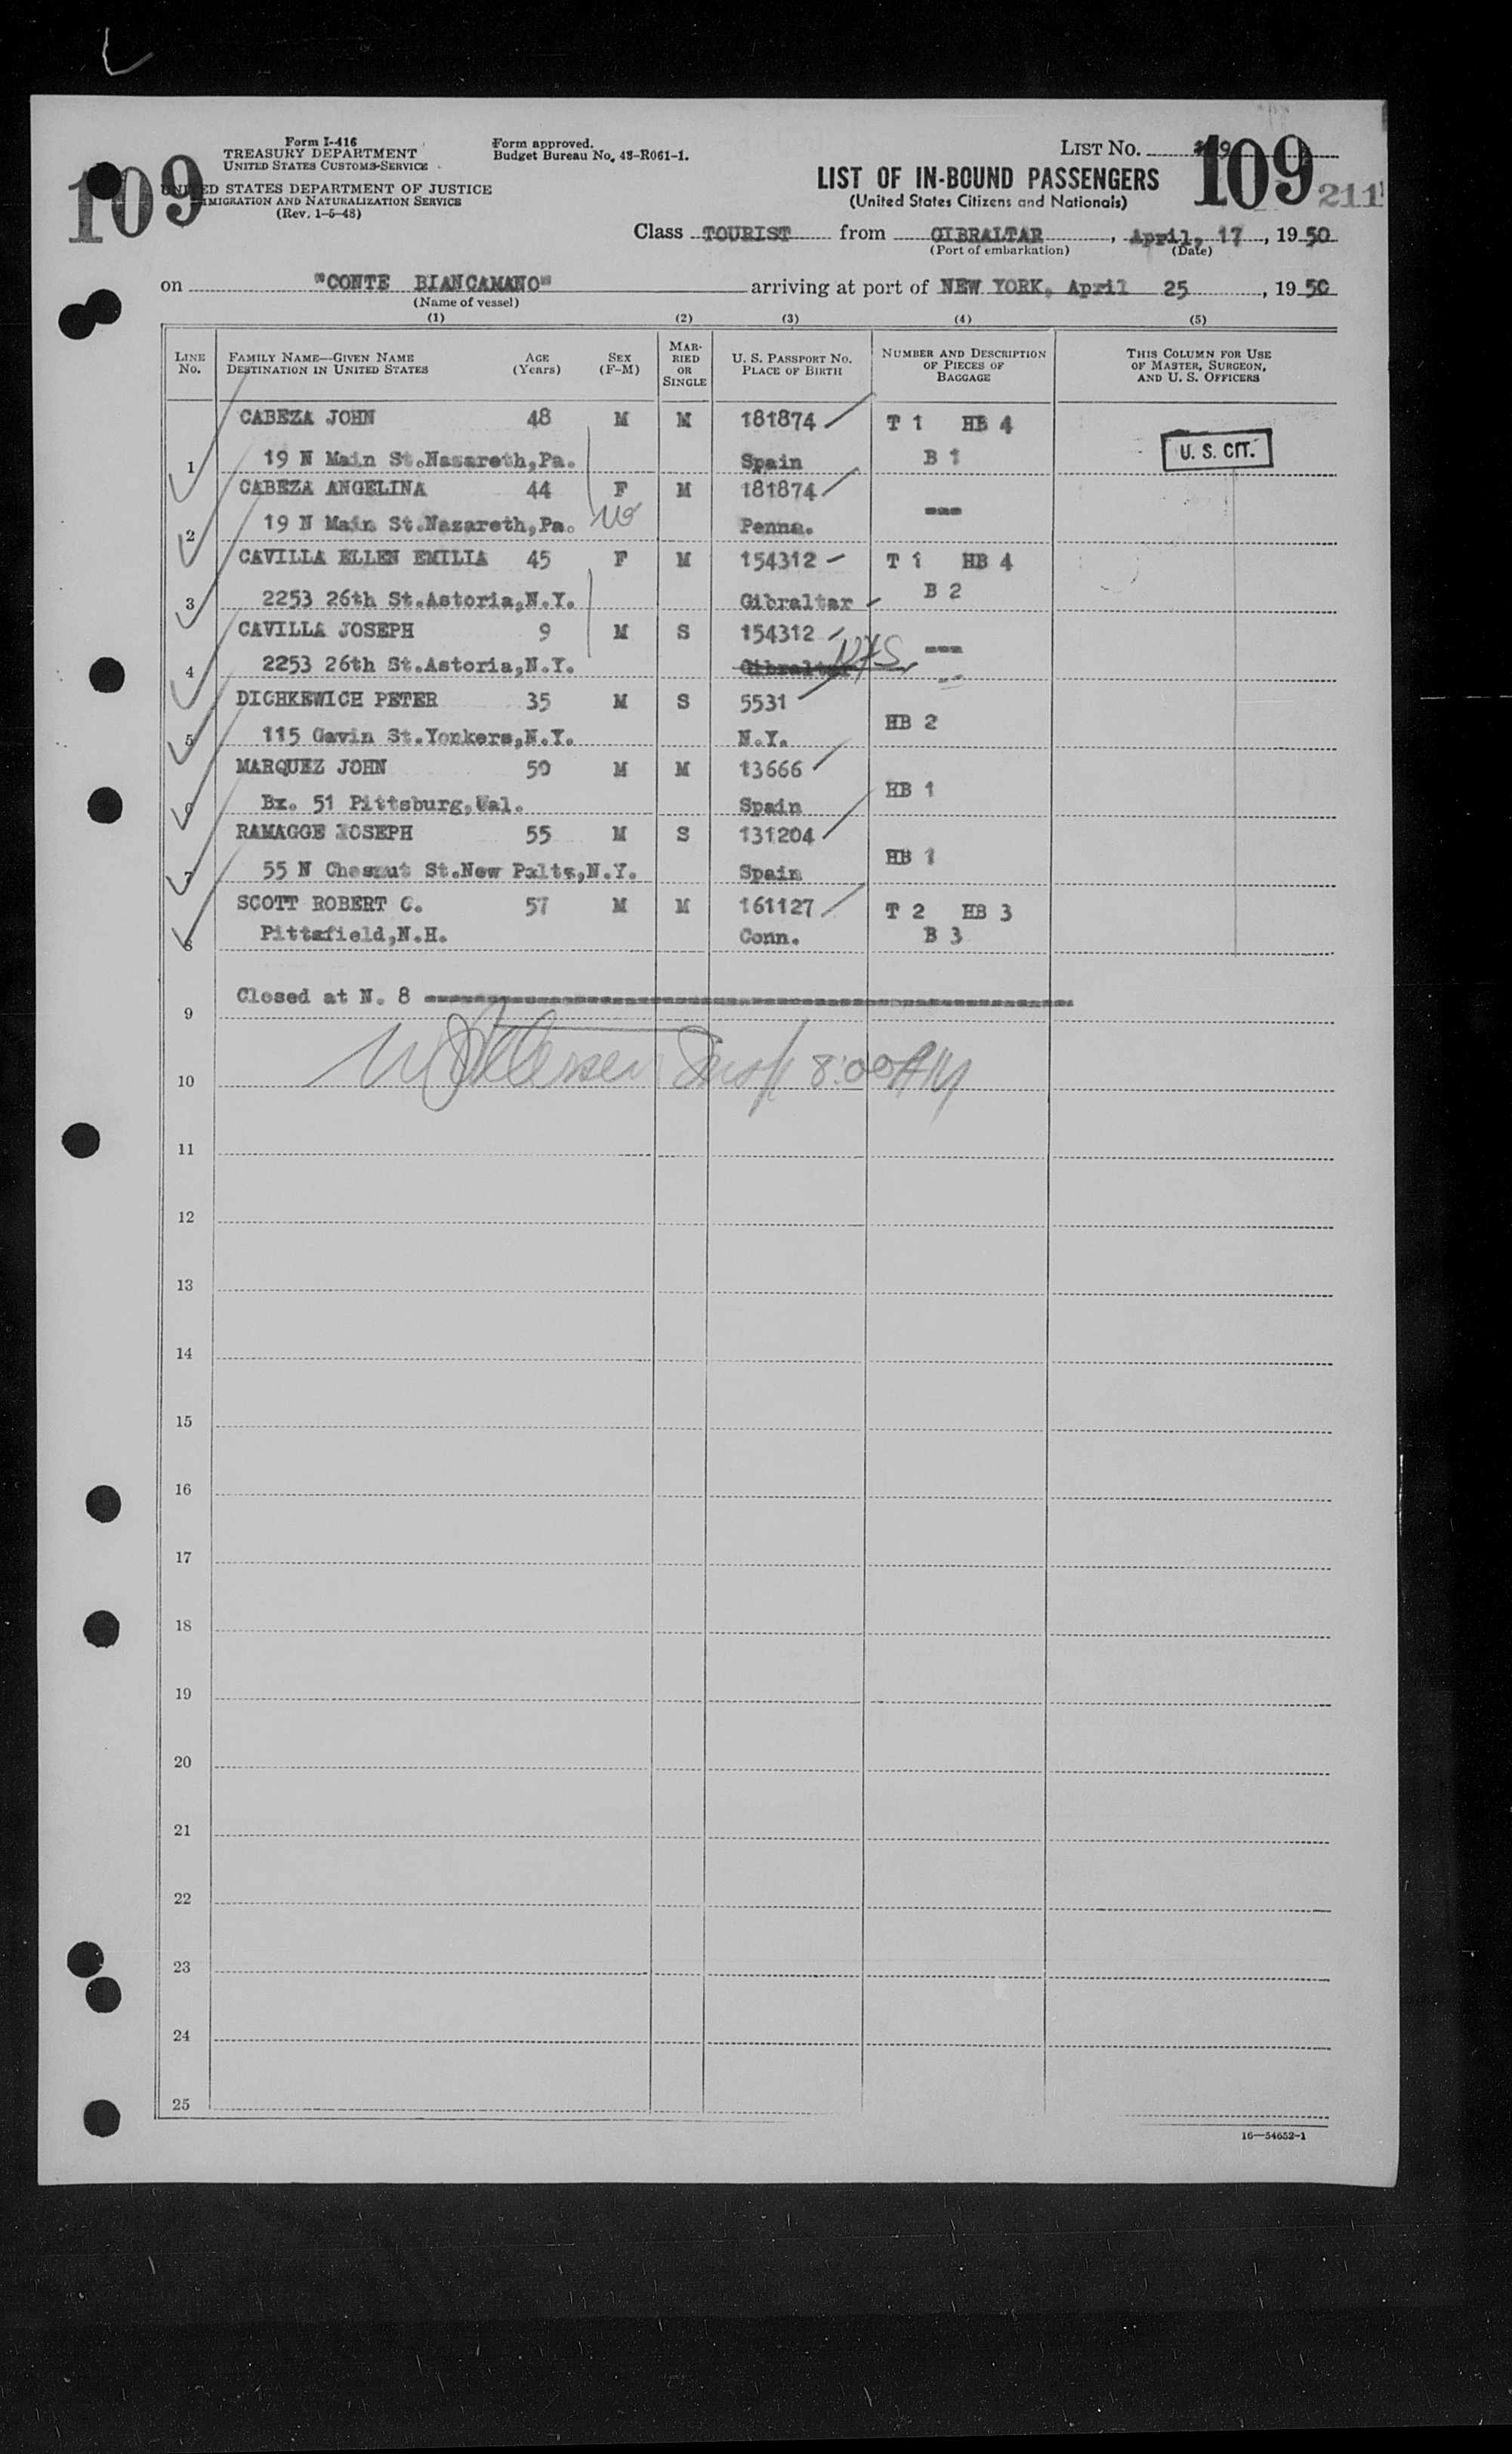 Form I-416
TREASURY DEPARTMENT
UNITED STATES CUSTOMS SERVICE
Form approved.
Budget Bureau No. 43-R061-1.
LIST NO. 109
109
109
211
UNITED STATES DEPARTMENT OF JUSTICE
IMMIGRATION AND NATURALIZATION SERVICE
(Rev. 1-5-48)
LIST OF IN-BOUND PASSENGERS
(United States Citizens and Nationals)
Class TOURIST from GIBRALTAR, April, 17, 1950
(Port of embarkation) (Date)
on "CONTE BIANCAMANO" arriving at port of NEW YORK, April 25, 1950
(Name of vessel)
(1) (2) (3) (4) (5)
LINE NO. FAMILY NAME—GIVEN NAME DESTINATION IN UNITED STATES AGE (Years) SEX (F-M) MARRIED OR SINGLE U. S. PASSPORT NO. PLACE OF BIRTH NUMBER AND DESCRIPTION OF PIECES OF BAGGAGE THIS COLUMN FOR USE OF MASTER, SURGEON, AND U. S. OFFICERS
CABEZA JOHN 48 M M 181874 T 1 HB 4
1 19 N Main St.Nazareth,Pa. Spain B 1 U. S. CIT.
CABEZA ANGELINA 44 F M 181874 ---
2 19 N Main St.Nazareth,Pa. Penna.
CAVILLA ELLEN EMILIA 45 F M 154312 T 1 HB 4
3 2253 26th St.Astoria,N.Y. Gibraltar B 2
CAVILLA JOSEPH 9 M S 154312 ---
4 2253 26th St.Astoria,N.Y. Gibraltar
DICHKEWICH PETER 35 M S 5531 HB 2
5 115 Gavin St.Yonkers,N.Y. N.Y.
MARQUEZ JOHN 50 M M 13666 HB 1
6 Bx. 51 Pittsburg,Cal. Spain
RAMAGGE JOSEPH 55 M S 131204 HB 1
7 55 N Chesnut St.New Paltz,N.Y. Spain
SCOTT ROBERT C. 57 M M 161127 T 2 HB 3
8 Pittsfield,N.H. Conn. B 3
Closed at N. 8
9
10 8:00 AM
11
12
13
14
15
16
17
18
19
20
21
22
23
24
25
16—54652-1